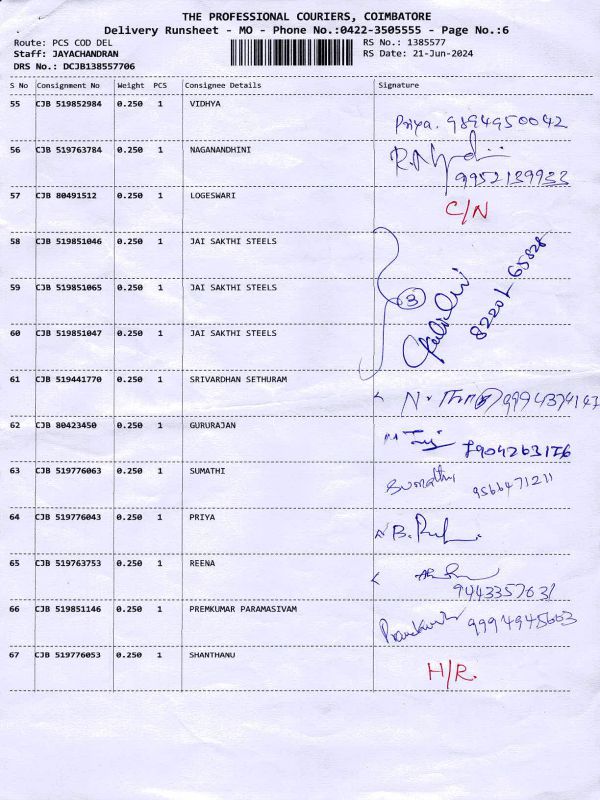 THE PROFESSIONAL COURIERS, COIMBATORE
Delivery Runsheet - MO - Phone No.:0422-3505555 - Page No.:6
Route: PCS COD DEL RS No.: 1385577
Staff: JAYACHANDRAN RS Date: 21-Jun-2024
DRS No.: DCJB138557706
S No Consignment No Weight PCS Consignee Details Signature
55 CJB 519852984 0.250 1 VIDHYA
Priya. 9894950042
56 CJB 519763784 0.250 1 NAGANANDHINI
9952139933
57 CJB 80491512 0.250 1 LOGESWARI
C/N
58 CJB 519851046 0.250 1 JAI SAKTHI STEELS
59 CJB 519851065 0.250 1 JAI SAKTHI STEELS
3
82201 65828
60 CJB 519851047 0.250 1 JAI SAKTHI STEELS
61 CJB 519441770 0.250 1 SRIVARDHAN SETHURAM
62 CJB 80423450 0.250 1 GURURAJAN
63 CJB 519776063 0.250 1 SUMATHI
Sumathi 9566471211
64 CJB 519776043 0.250 1 PRIYA
65 CJB 519763753 0.250 1 REENA
9443357631
66 CJB 519851146 0.250 1 PREMKUMAR PARAMASIVAM
9994945603
67 CJB 519776053 0.250 1 SHANTHANU
H/R.